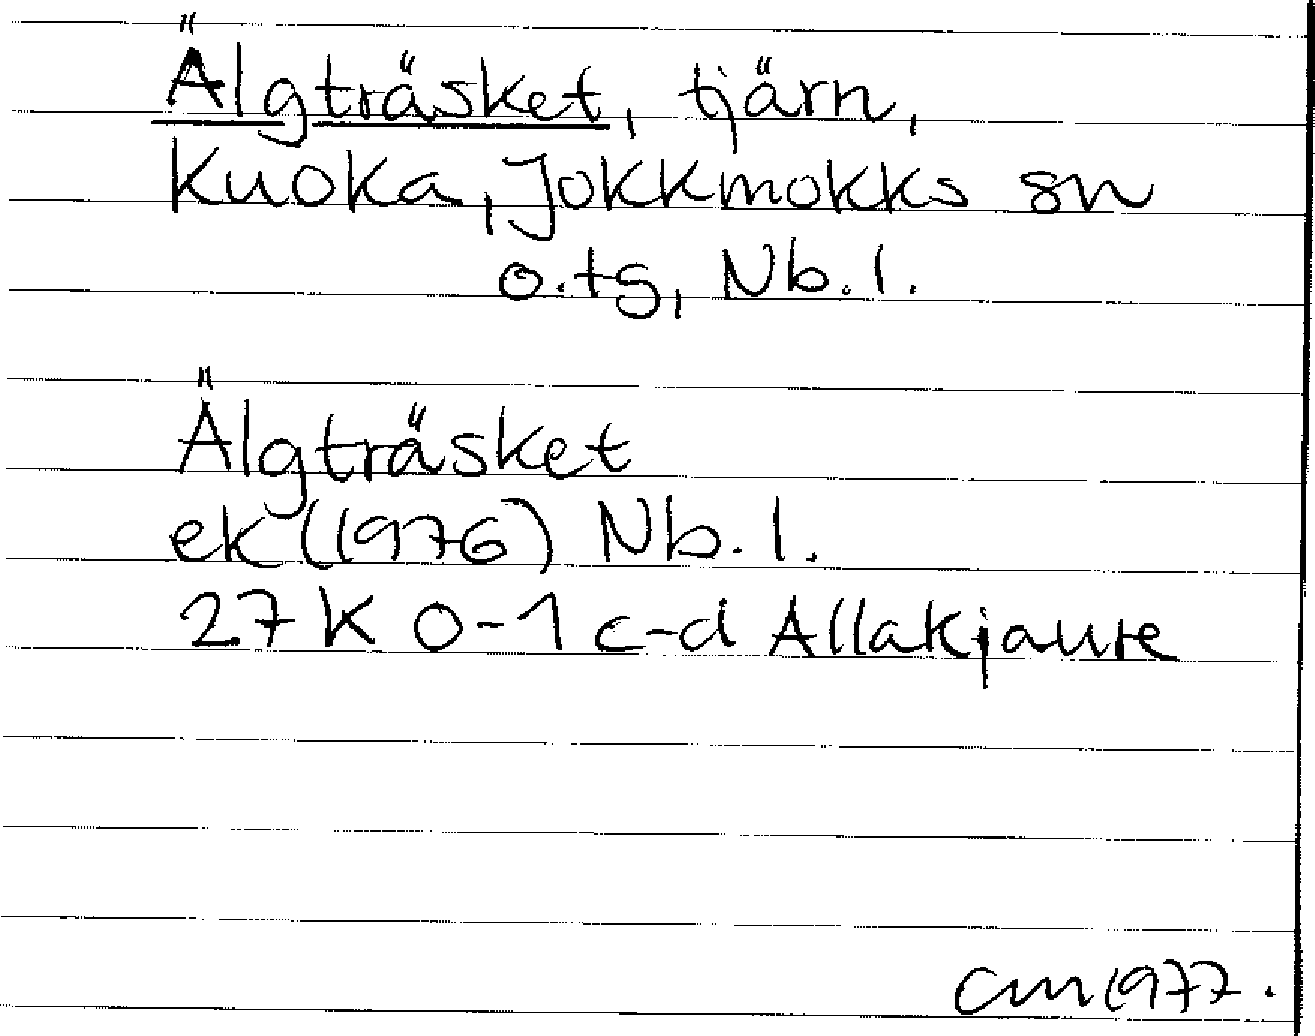 Älgträsket, tjärn,
Kuoka, Jokkmokks sn
o.tg, Nb.l.
Älgträsket
ek (1976) Nb.l.
27 K 0-1 c-d Allakjaure
cm 1977.